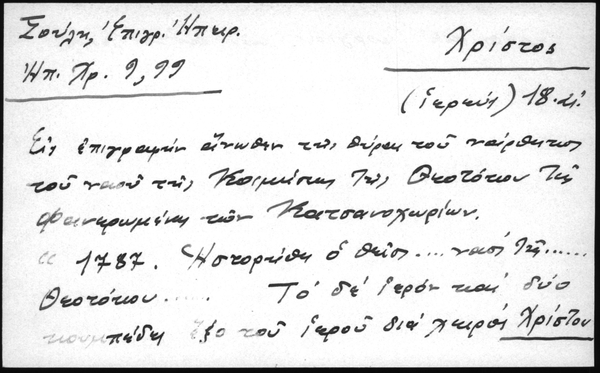 Σούλη, Ἐπιγρ. Ἠπειρ.
Χρίστος
Ἠπ. Χρ. 9, 99
(ἱερεύς) 18. αἰ.
Εἰς ἐπιγραφήν ἄνωθεν τῆς θύρας τοῦ νάρθηκος
τοῦ ναοῦ τῆς Κοιμήσεως τῆς Θεοτόκου τῆς
Φανερωμένης τῶν Κατσανοχωρίων.
"1787. Ἡστορήθη ὁ θεῖος .... ναός τῆς ......
Θεοτόκου ...... Τό δέ ἱερόν καί δύο
κουμπέδες ἔξο τοῦ ἱεροῦ διά χειρός Χρίστου